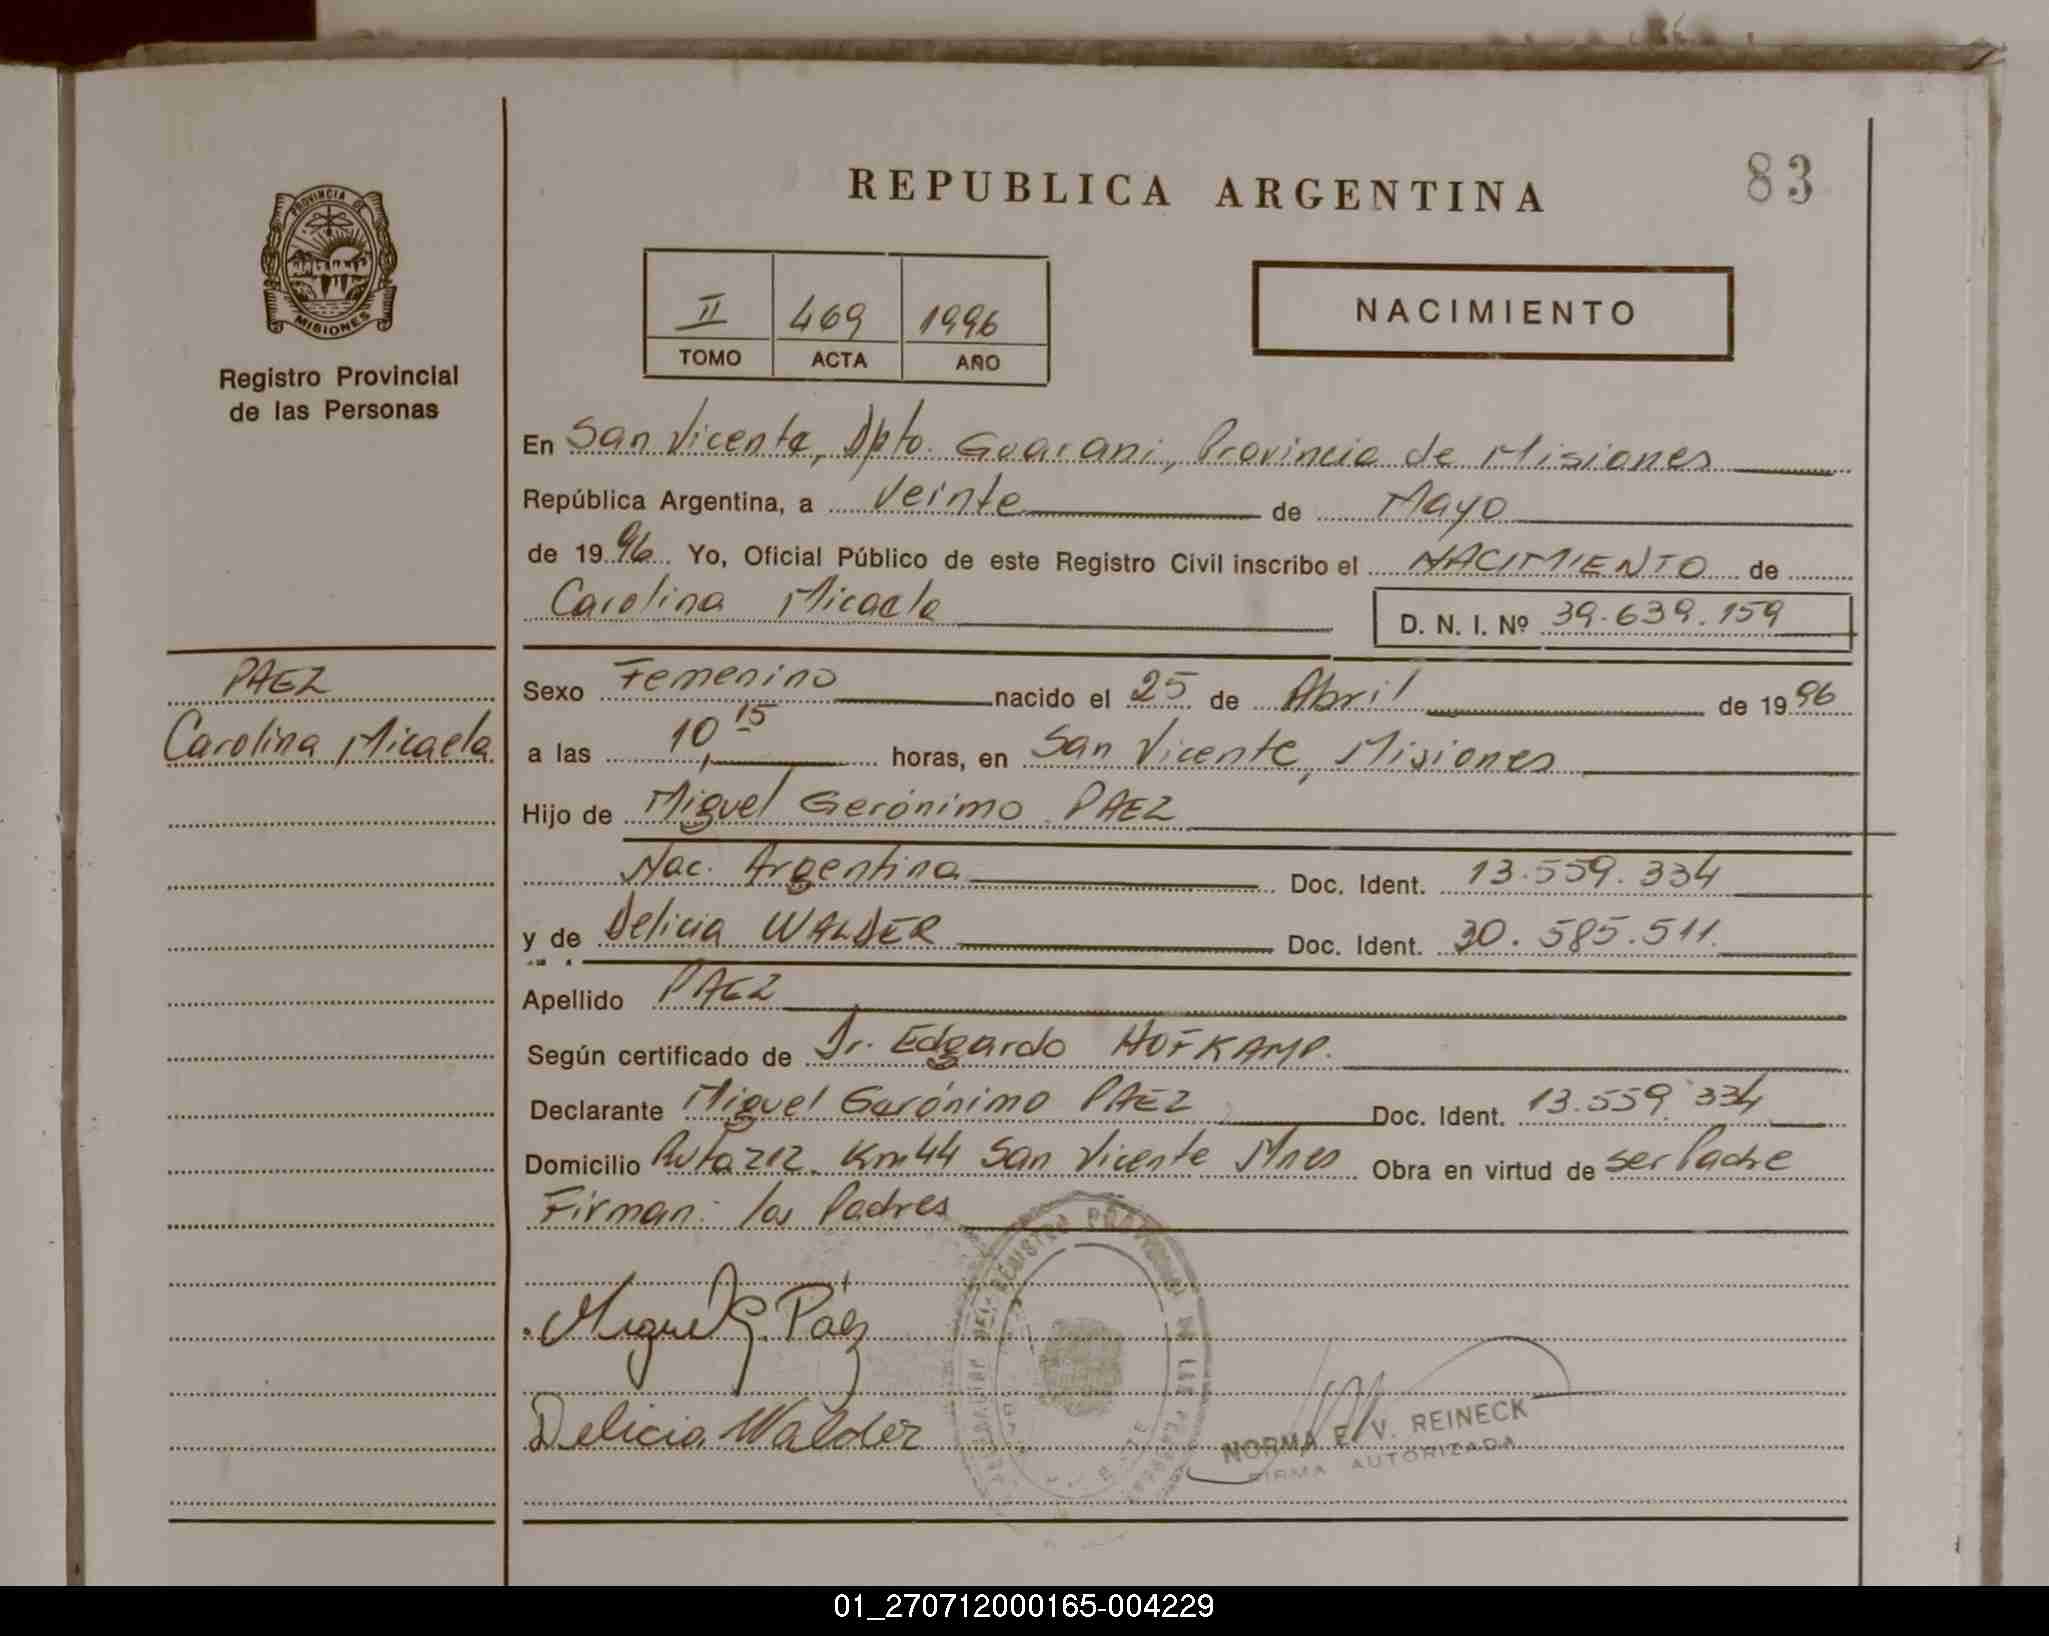 83
REPUBLICA ARGENTINA
PROVINCIA DE
MISIONES
Registro Provincial
de las Personas
II 469 1996
TOMO ACTA AÑO
NACIMIENTO
En San Vicente, Dpto. Guarani, Provincia de Misiones
República Argentina, a veinte de Mayo
de 1996 Yo, Oficial Público de este Registro Civil inscribo el NACIMIENTO de
Carolina Micaela D. N. I. Nº 39.639.159
PAEZ
Carolina Micaela
Sexo Femenino nacido el 25 de Abril de 1996
a las 10,15 horas, en San Vicente, Misiones
Hijo de Miguel Gerónimo PAEZ
Nac. Argentina Doc. Ident. 13.559.334
y de Delicia WALDER Doc. Ident. 30.585.511.
Apellido PAEZ
Según certificado de Dr. Edgardo HOFKAMP.
Declarante Miguel Gerónimo PAEZ Doc. Ident. 13.559.334
Domicilio Ruta 212. Km 44 San Vicente Mnes Obra en virtud de ser Padre
Firman: los Padres
Miguel G. Páez
Delicia Walder
REGISTRO PROVINCIAL DE LAS PERSONAS
NORMA E. V. REINECK
FIRMA AUTORIZADA
01_270712000165-004229